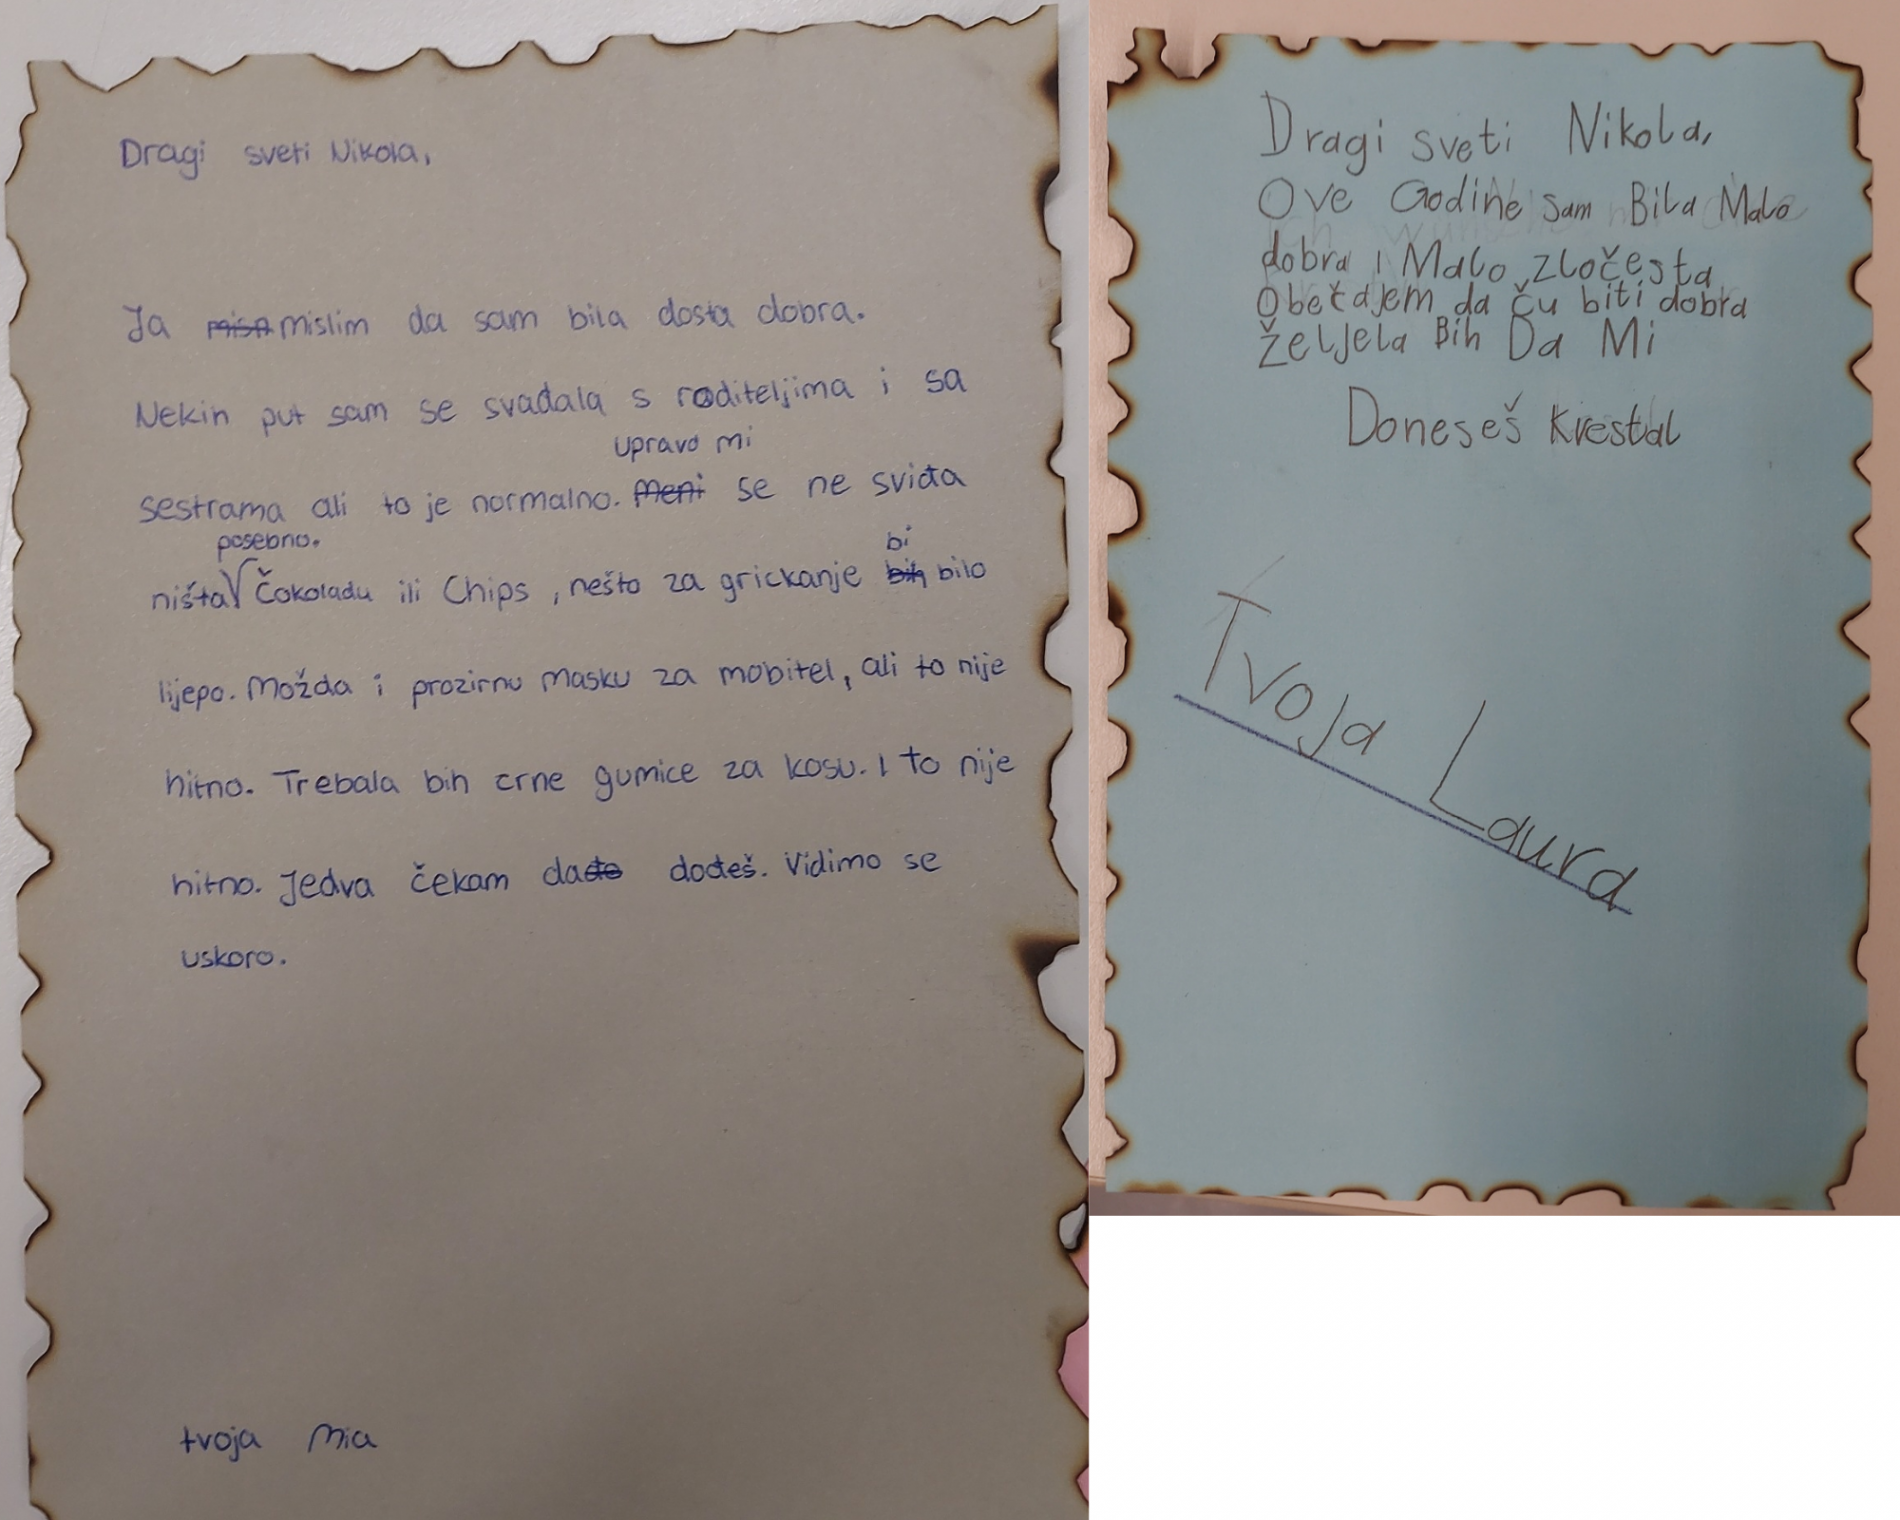 Dragi sveti Nikola,
Ja misn mislim da sam bila dosta dobra.
Nekin put sam se svađala s roditeljima i sa
upravo mi
sestrama ali to je normalno. Meni se ne sviđa
posebno.
ništa Čokoladu ili Chips, nešto za grickanje bih bilo
bi
lijepo. Možda i prozirnu masku za mobitel, ali to nije
hitno. Trebala bih crne gumice za kosu. I to nije
hitno. Jedva čekam da dođeš. Vidimo se
uskoro.
tvoja Mia
Dragi sveti Nikola,
Ove Godine sam Bila Malo
dobra i Malo zločesta
Obećajem da ču biti dobra
željela Bih Da Mi
Doneseš Krestal
Tvoja Laura